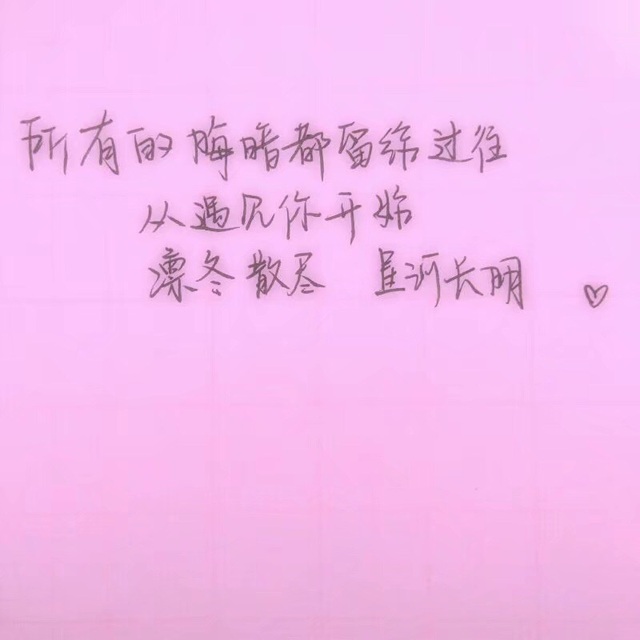 所有的晦暗都留给过往
从遇见你开始
凛冬散尽 星河长明 ♡